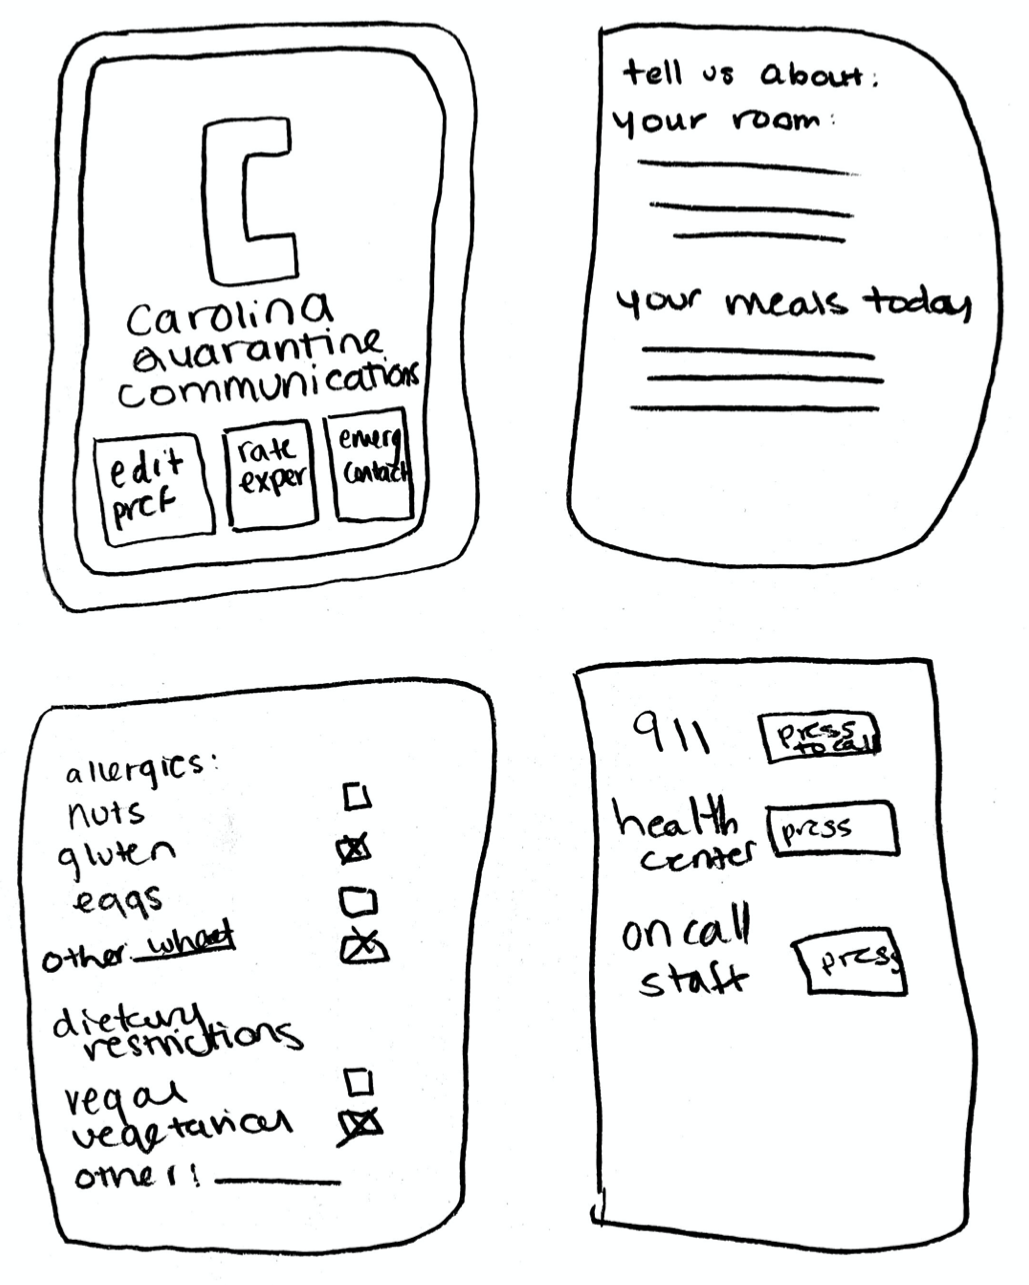 C
Carolina
Quarantine
Communications
edit
pref
rate
exper
emerg
contact
tell us about:
your room:
your meals today
allergies:
nuts
gluten
eggs
other: wheat
dietary
restrictions
vegan
vegetarian
other:
911
press
to call
health
center
press
on call
staff
press